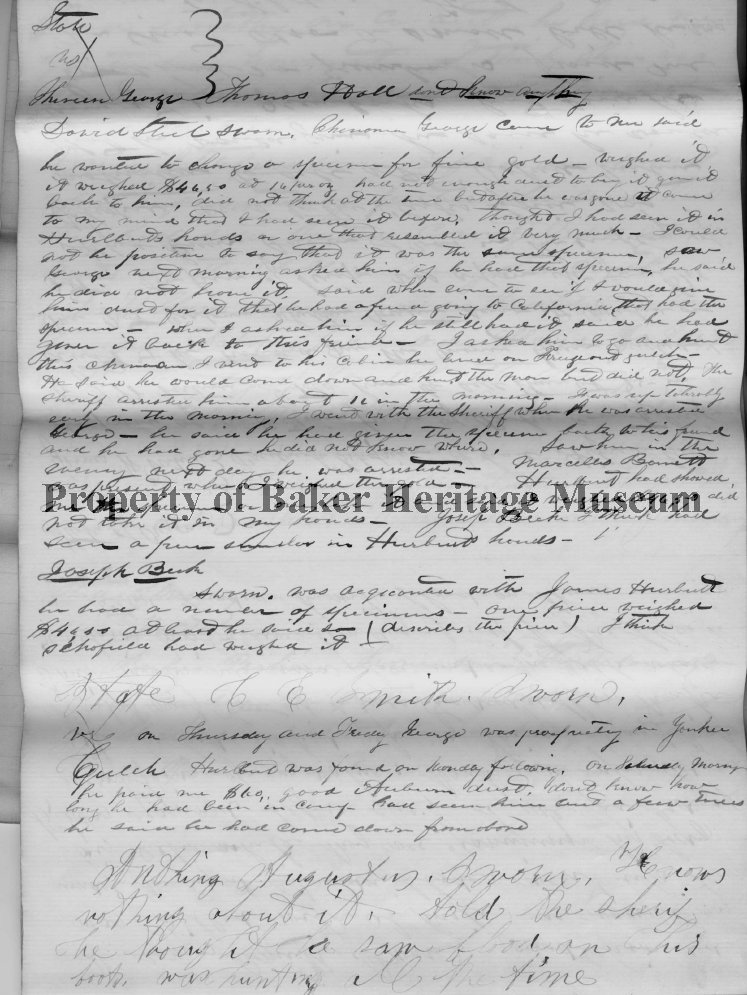 State
vs
George Thomas Hall dont know anything
David sworn. George came to me said
he wanted to change a specimen for fine gold - weighed it
it weighed $46.50 at had not enough dust to buy it gave it
back to him, did not think at the time but after he was gone it came
to my mind that I had seen it before, thought I had seen it in
Hurlburts hands or one that resembled it very much - I could
not be positive to say that it was the same specimen, saw
George next morning asked him if he had that specimen, he said
he did not have it said when came to see if I would give
him dust for it that he had a friend going to California that had the
specimen - when I asked him if he still had it said he had
given it back to this friend - I asked him to go and hunt
this chinaman I went to his cabin he lived on gulch -
He said he would come down and hunt the man but did not, The
sheriff arrested him about 11 in the morning - I was up
early in the morning, I went with the sheriff when he was arrested
George - he said he had given the specimen back to his friend
and he had gone he did not know where, saw him in the
evening next day he was arrested - Marcellus
was present when I weighed the gold - Hurlburt had showed
me specimen did
Property of Baker Heritage Museum
not take it in my hands - Joseph Beck I think had
seen a piece similar in Hurlburt hands -
Joseph Beck
Sworn. was acquainted with James Hurlbutt
he had a number of specimens - one piece weighed
$46.50 at least he said so (describes the piece) I think
Schofield had weighed it -
State C E Smith. Sworn,
vs on Thursday and Friday George was in Yonkee
Gulch Hurlbut was found on Monday following, on Saturday Morning
he paid me good Auburn dust, dont know how
long he had been in camp had seen him but a few times
he said he had come down from above
Augustus. Sworn. Knows
nothing about it. told the sheriff
he thought he saw blood on his
boots. was hunting all the time